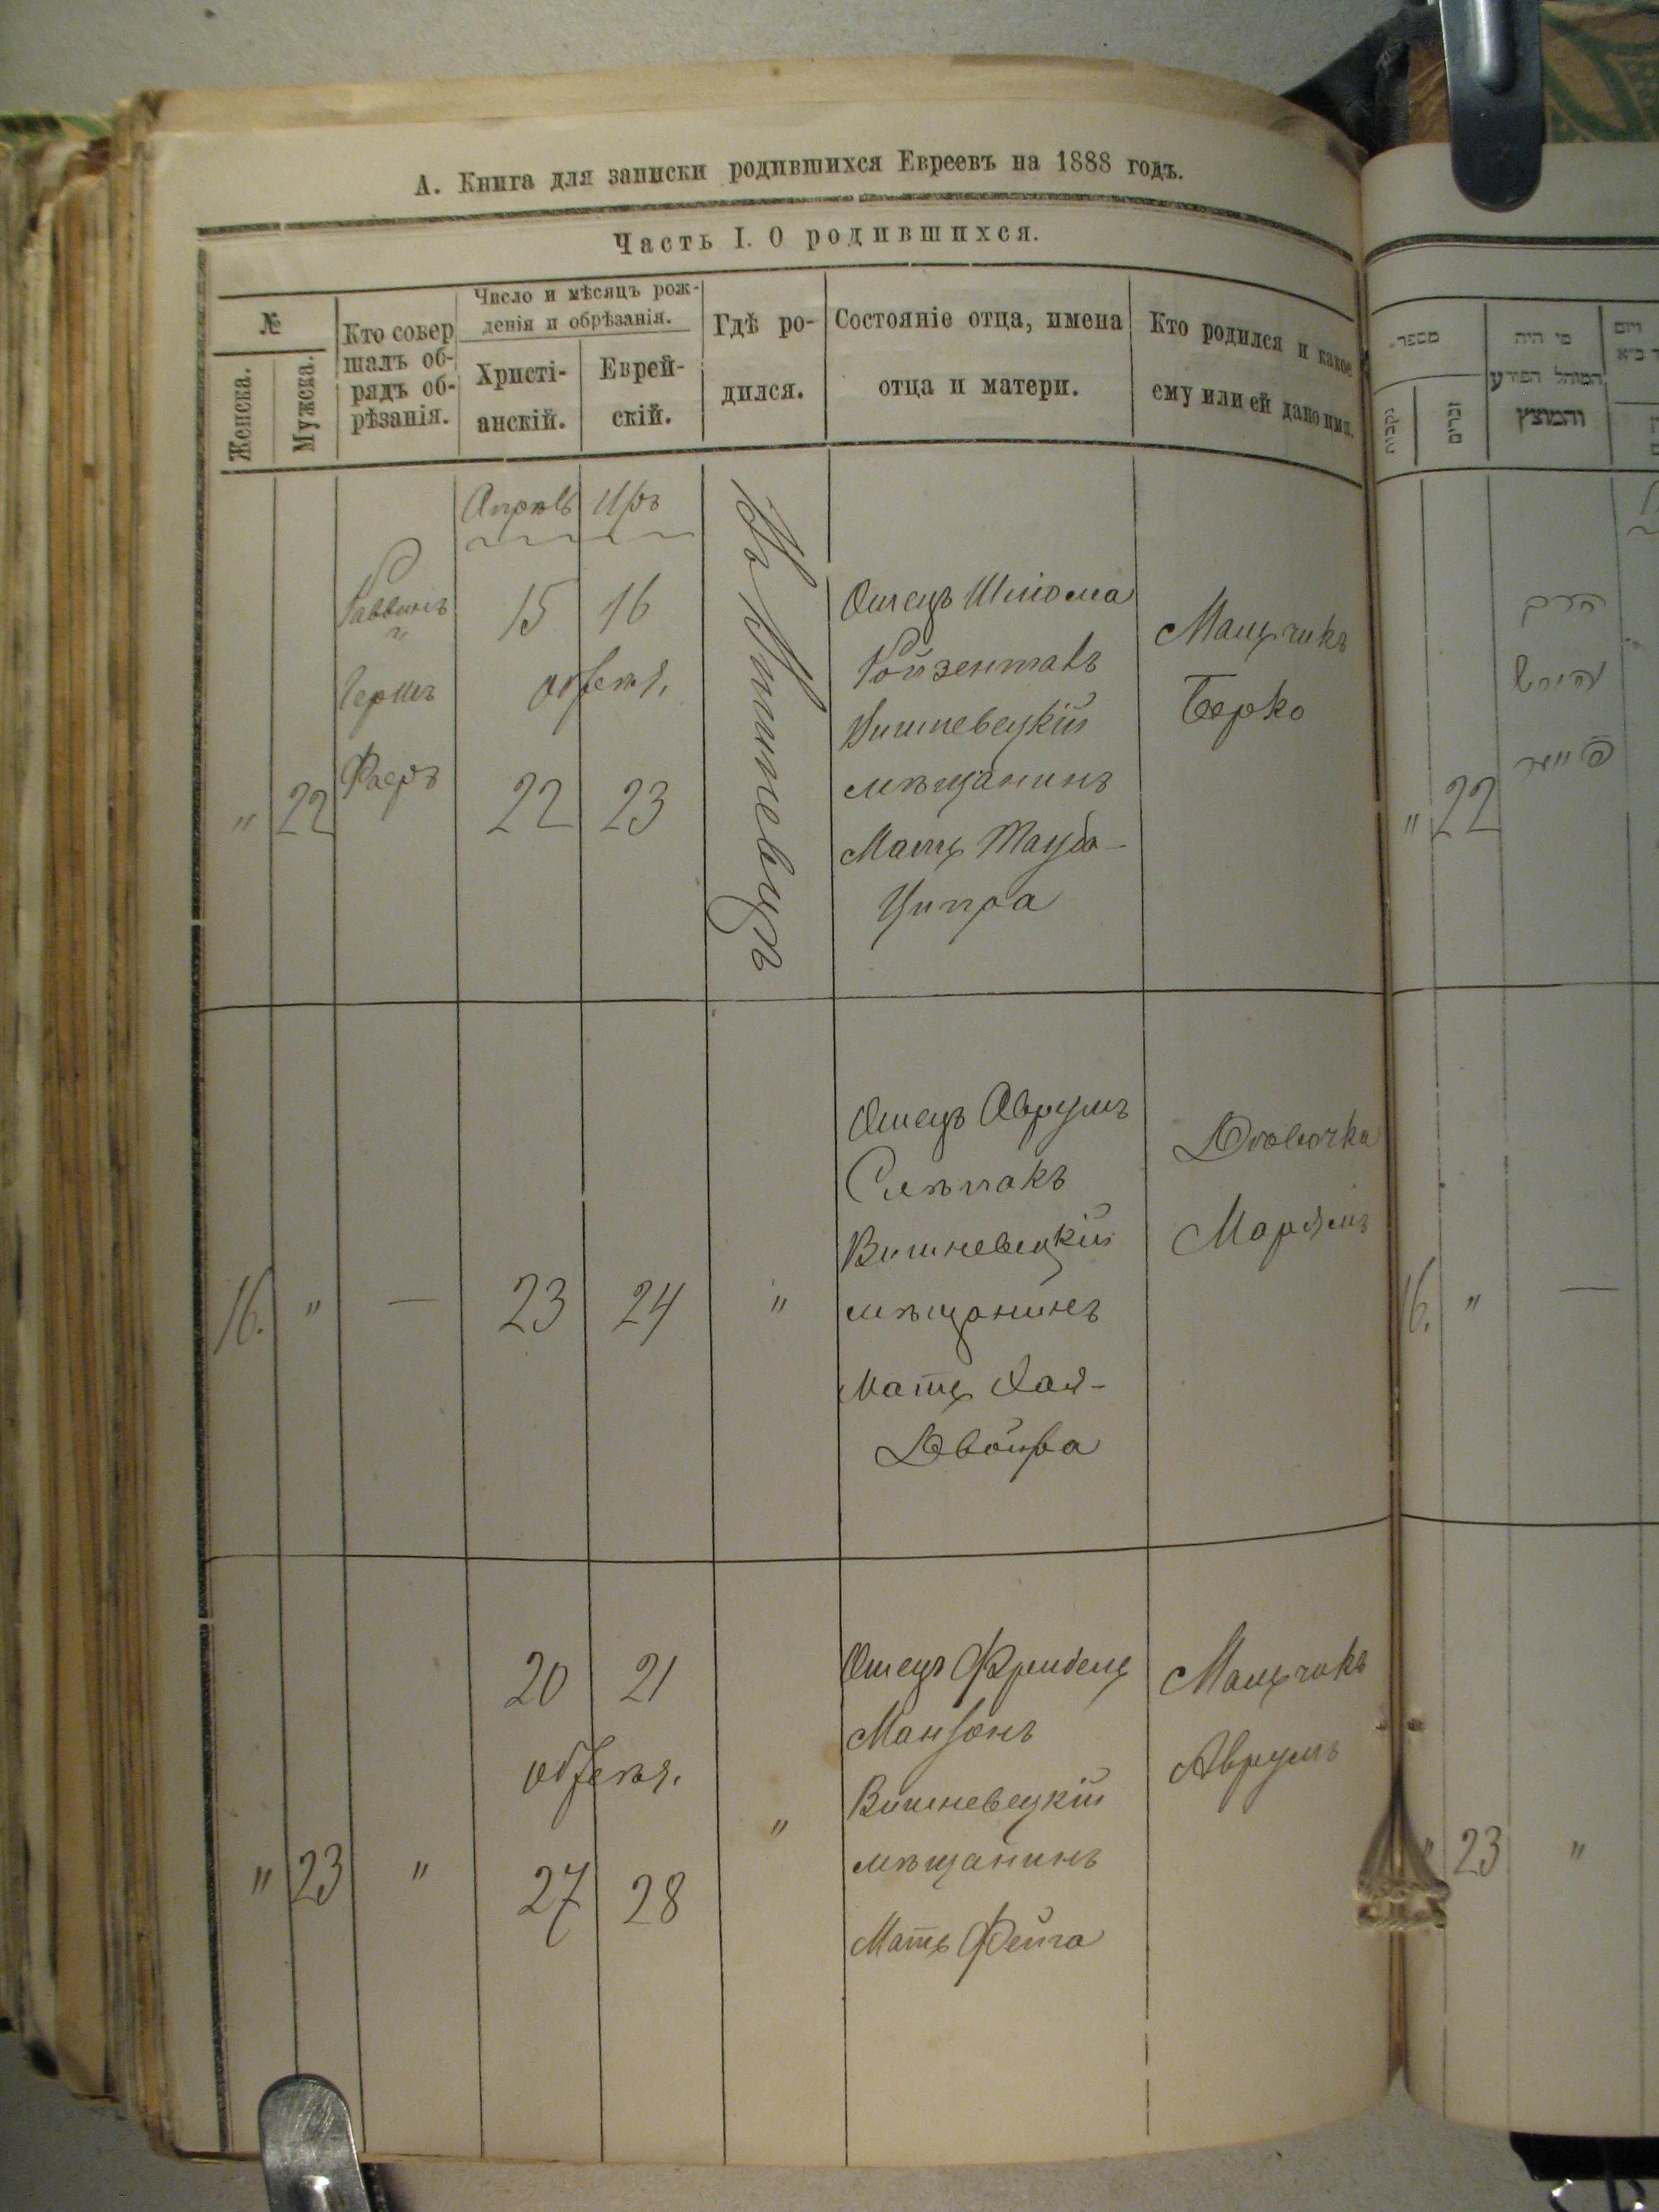 А. Книга для записки родившихся Евреевъ на 1888 годъ.
Часть I. О родившихся.
№
Женска.
Мужска.
Кто совер
шалъ об-
рядъ об-
рѣзанія.
Число и мѣсяцъ рож-
денія и обрѣзанія.
Христі-
анскій.
Еврей-
скій.
Гдѣ ро-
дился.
Состояніе отца, имена
отца и матери.
Кто родился и какое
ему или ей дано имя.
Апрель Иръ
„ 22
Раввинъ
Гершъ
Фаеръ
15 16
обрезыя.
22 23
Въ Вишневцѣ
Отецъ Шлiома
Ройзенталъ
Вишневецкiй
мѣщанинъ
Мать Тауба-
Ципра
Мальчикъ
Берко
16. „ — 23 24 „
Отецъ Аврумъ
Слѣпакъ
Вишневецкiй
мѣщанинъ
Мать Хая-
Двойра
Дѣвочка
Марямъ
„ 23 „
20 21
27 28
„
Отецъ Фридель
Манзонъ
Вишневецкiй
мѣщанинъ
Мать Фейга
Мальчикъ
Аврумъ
מספר.
נקבות
זכרים
מי היה
המוהל הפורע
והמוצץ
הרב
הירש
פייער
„ 22
16. „ —
„ 23 „